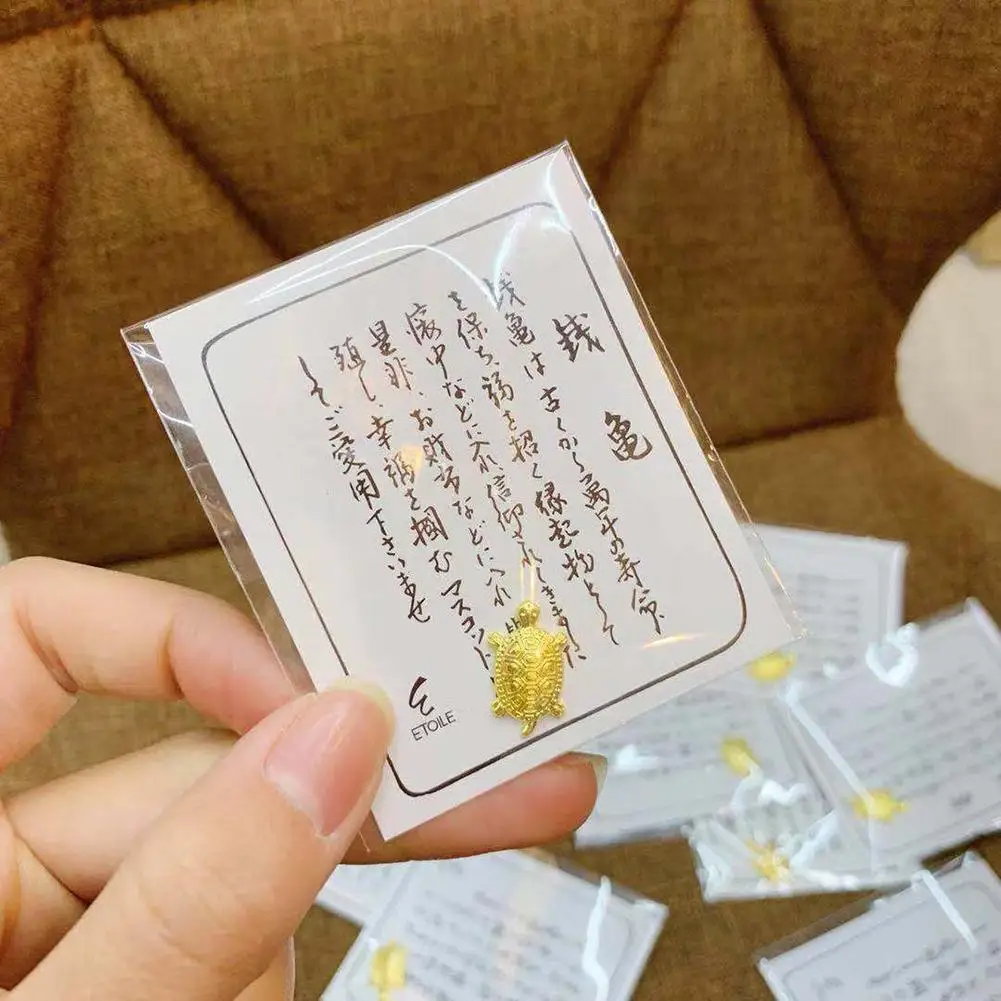 銭亀
銭亀は古くから萬年の寿命
を保ち、福を招く縁起物として
懐中などに入れ、信仰されてきました
是非、お財布などに入れ
殖し、幸福を掴むマスコット
としてご愛用下さいませ
ETOILE